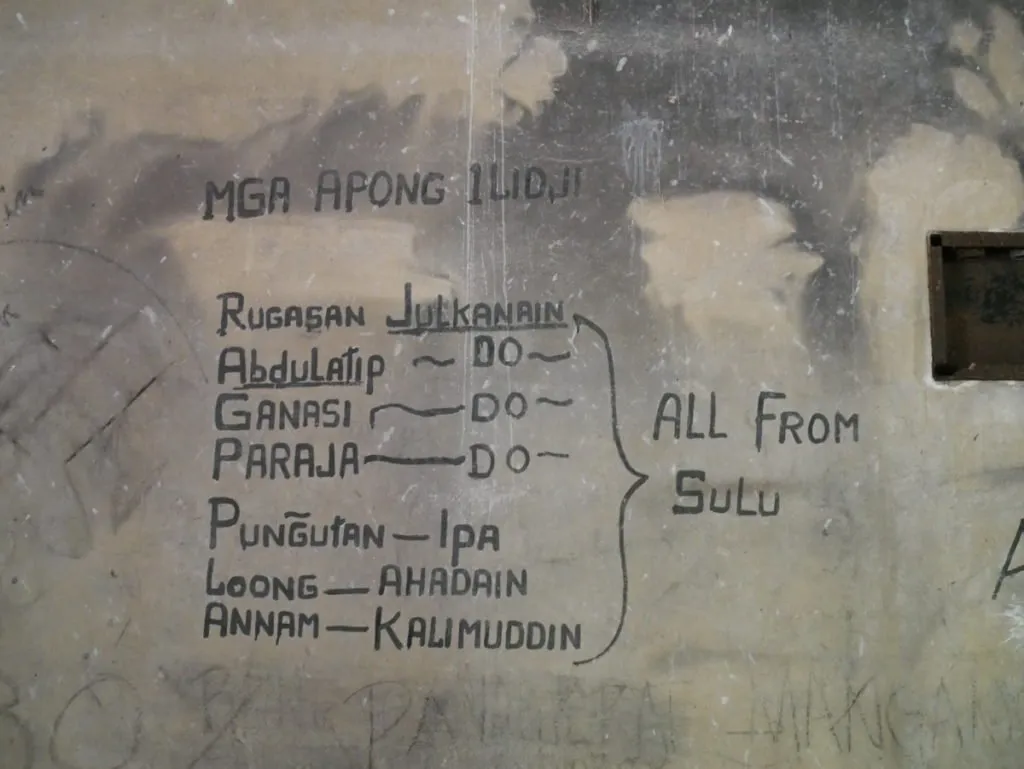 MGA APONG ILIDJI
RUGASAN JULKANAIN
ABDULATIP ~ DO ~
GANASI — DO ~
PARAJA — DO —
PUNG̃UTAN — IPA
LOONG — AHADAIN
ANNAM — KALIMUDDIN
ALL FROM
SULU